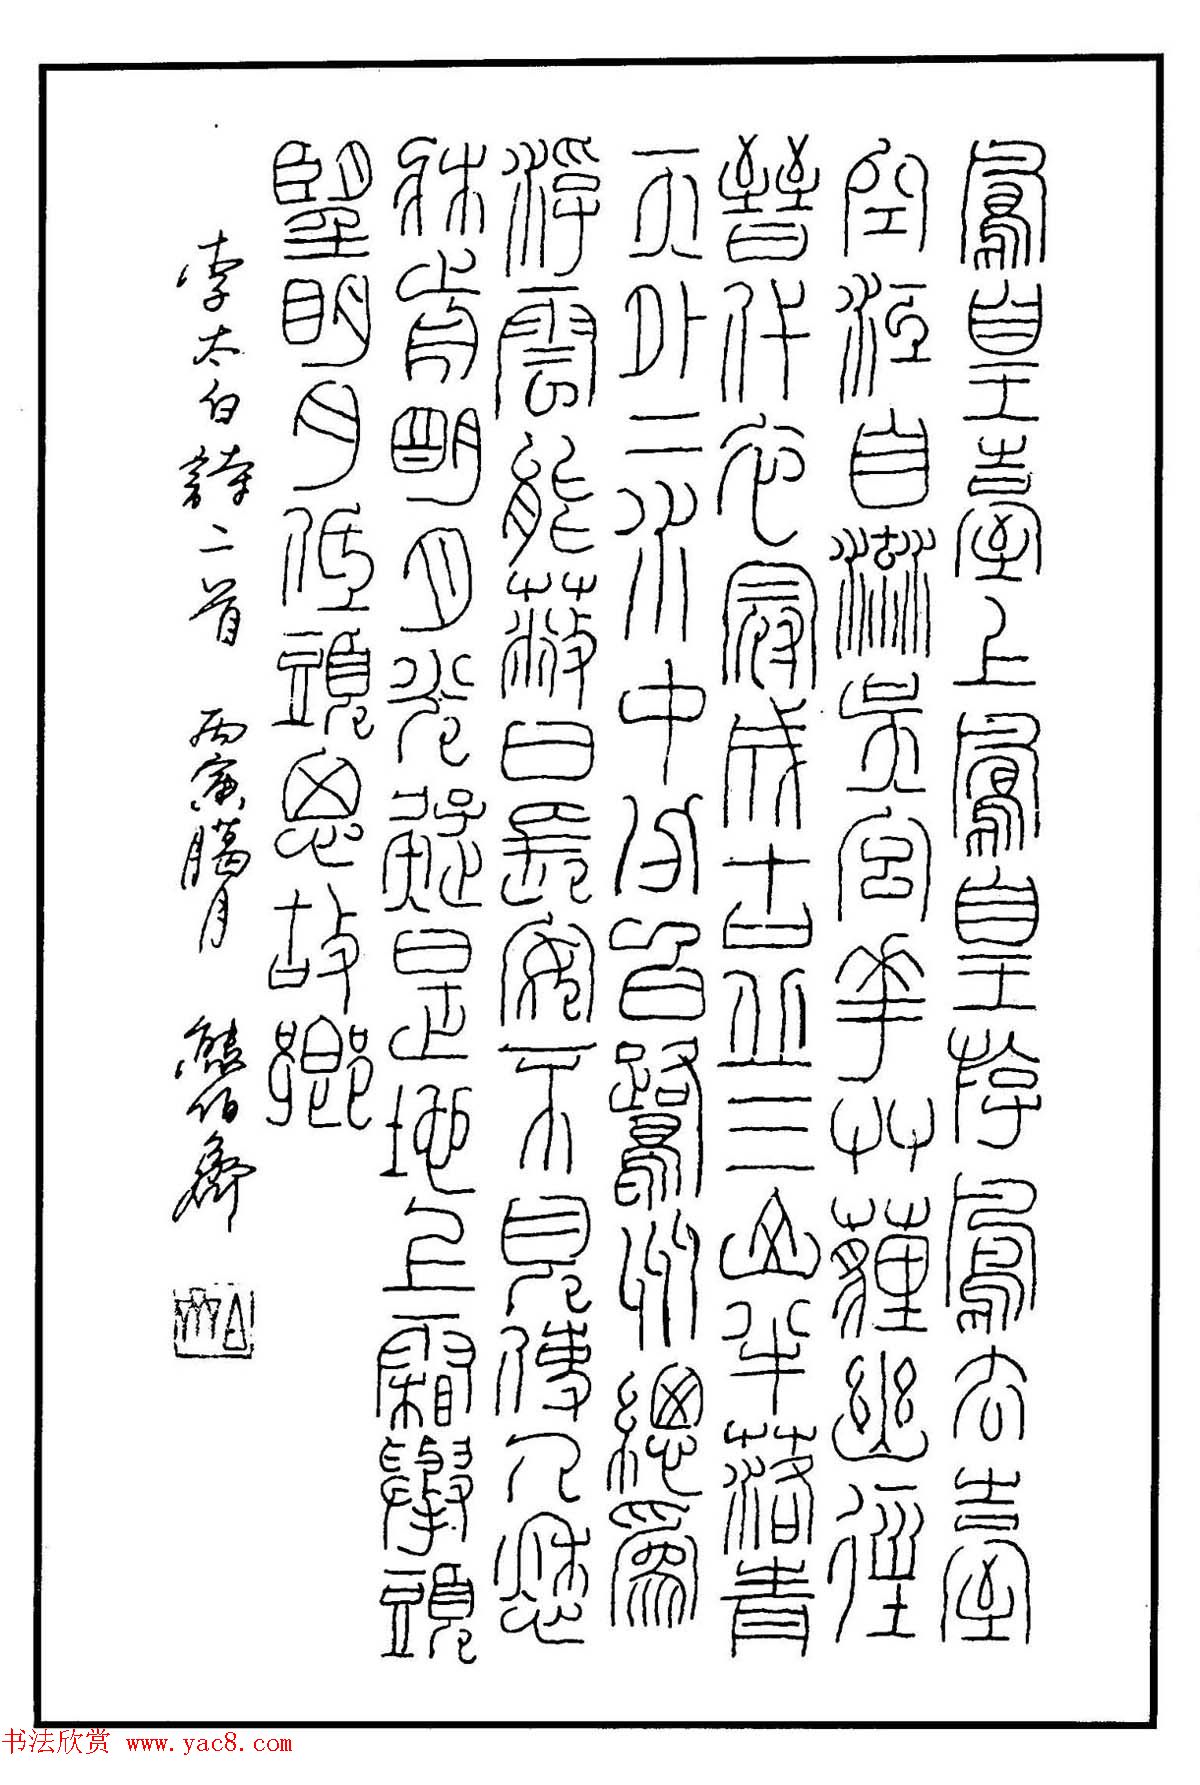 鳳皇臺上鳳皇斿鳳去臺
空江自流吳宮華艸薶幽徑
晉代衣冠成古丘三山半落青
天外二水中分白鷺州總爲
浮雲能蔽日長安不見使人愁
牀前朙月光疑是地上霜舉頭
望明月低頭思故鄉
李太白詩二首 丙寅臘月 熊伯齊
书法欣赏 www.yac8.com